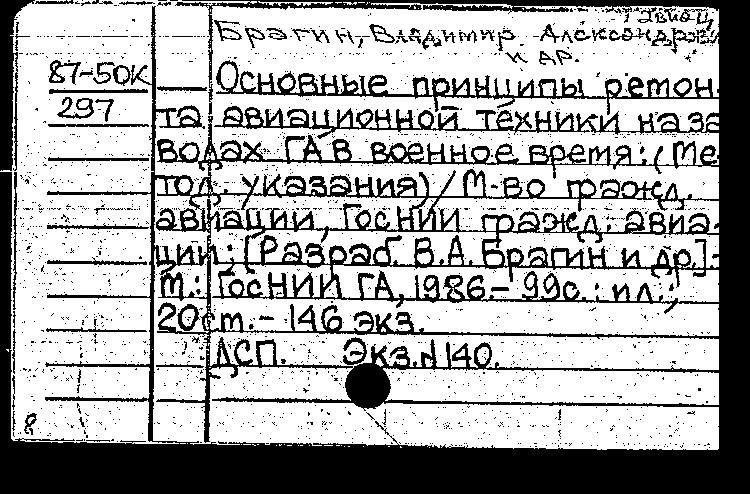 Брагин, Владимир Александрови
и др.
87-50к Основные принципы ремон-
297 та авиационной техники на за
водах ГА в военное время: (Ме
тод. указания) / М-во гражд.
авиации, ГосНИИ гражд. авиа-
ции; [Разраб. В.А. Брагин и др.]-
М.: ГосНИИ ГА, 1986.- 99с.: ил.;
20см.- 146 экз.
ДСП. Экз.N140.
8